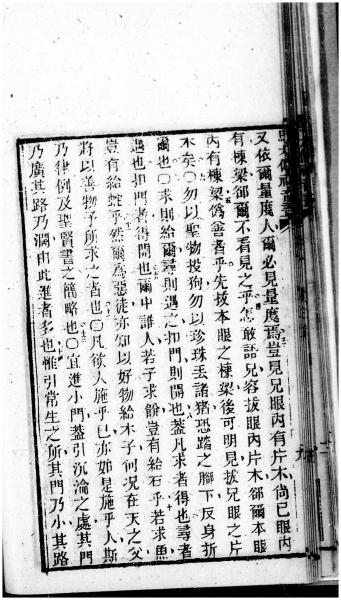 又依爾量度人爾必見量度焉豈見兄眼內有片木倘已眼內
有棟梁卻爾不看見之乎怎敢語兄容拔眼內片木卻爾本眼
內有棟梁偽善者乎先拔本眼之棟梁後可明見拔兄眼之片
木矣〇勿以聖物投狗勿以珍珠丟諸猪恐踏之腳下反身折
爾也〇求則給爾尋則遇之扣門則開也蓋凡求者得也尋者
遇也扣門者得開也爾中誰人若子求餅豈有給石乎若求魚
豈有給蛇乎然爾為惡徒亦知以好物給本子何況在天之父
將以善物予所求之者也〇凡欲人施乎已亦如是施乎人斯
乃律例及聖賢書之簡略也〇宜進小門蓋引沉淪之處其門
乃廣其路乃濶由此進者多也惟引常生之所其門乃小其路